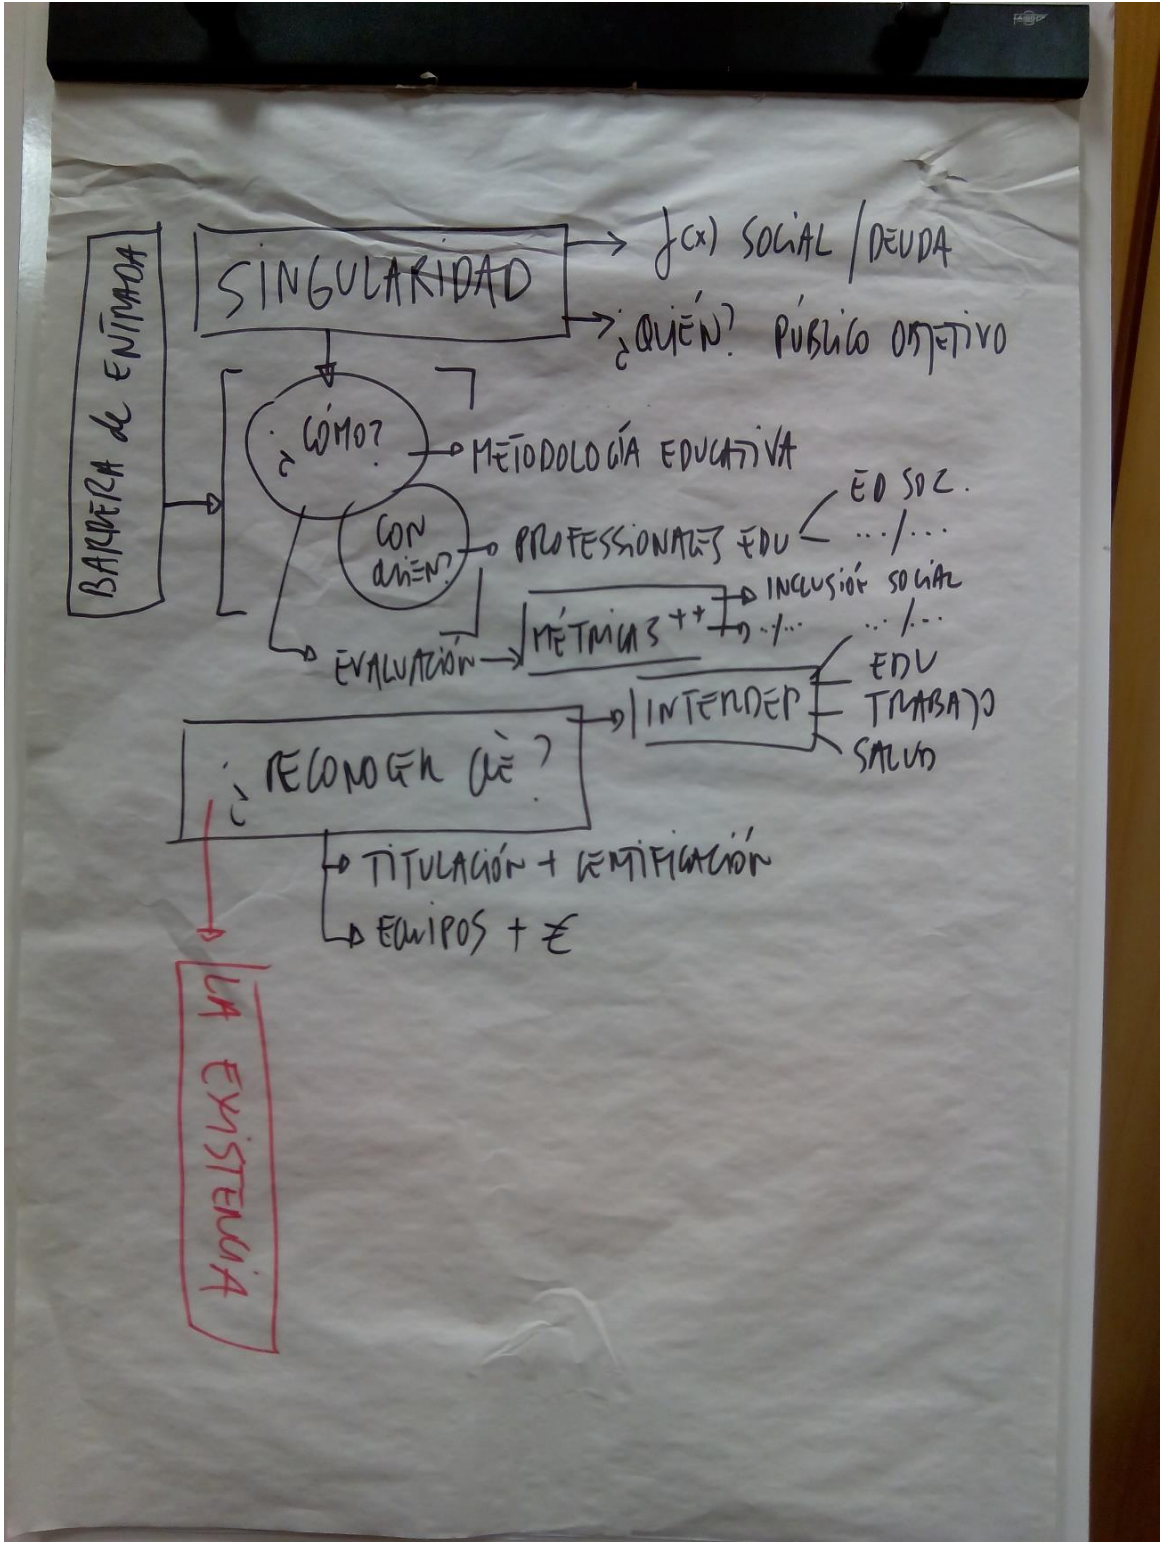 BARRERA de ENTRADA
SINGULARIDAD
f(x) SOCIAL / DEUDA
¿QUIÉN? PÚBLICO OBJETIVO
¿CÓMO?
METODOLOGÍA EDUCATIVA
CON
QUIÉN?
PROFESSIONALES EDU
ED SOC.
.../...
EVALUACIÓN
MÉTRICAS ++
INCLUSIÓN SOCIAL
../...
INTERDEP
.../...
EDU
TRABAJO
SALUD
¿RECONOCER QUÈ?
TITULACIÓN + CERTIFICACIÓN
EQUIPOS + €
LA EXISTENCIA